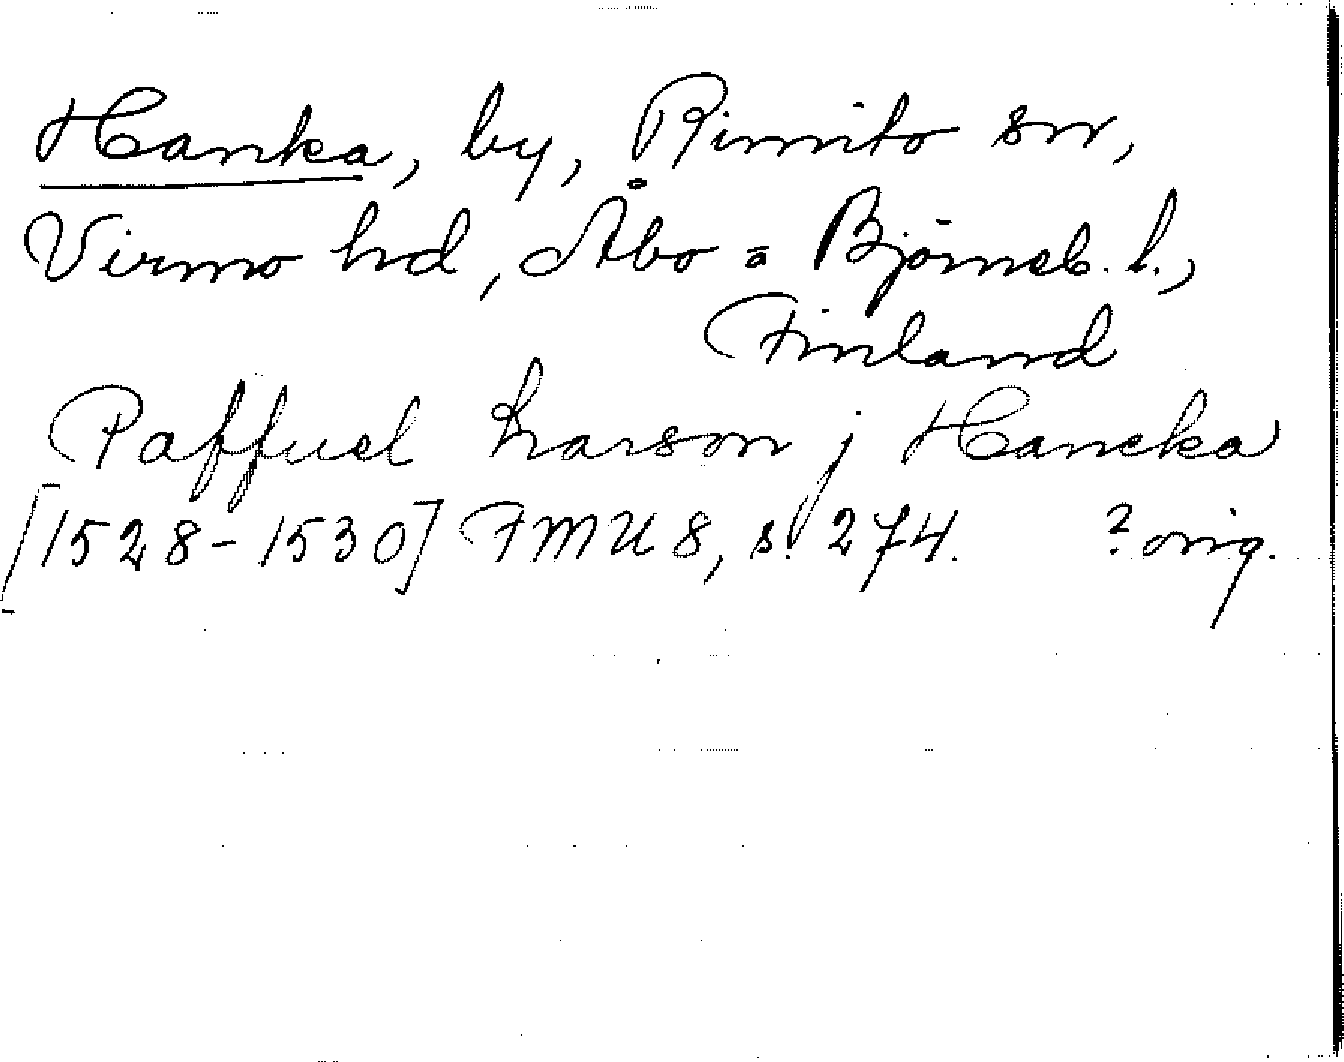 Hanka, by, Rimito sn,
Virmo hd, Åbo = Björneb. l.,
Finland
Paffuel Larson j Hancka
[1528-1530] FMU 8, s. 274. ? orig.